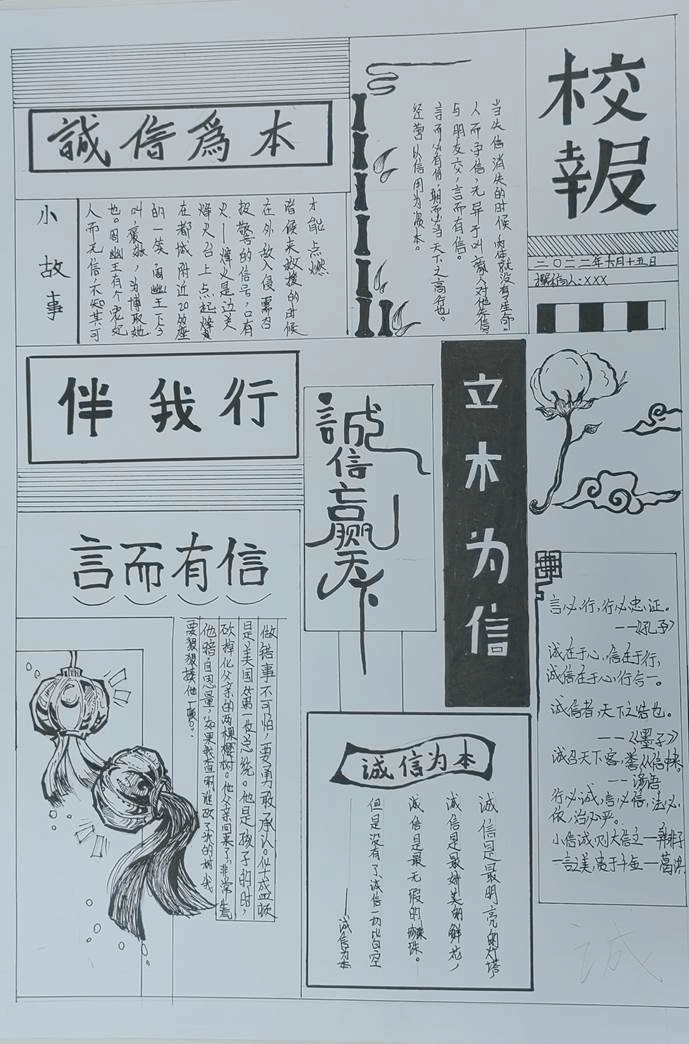 校報
二〇二二年六月十五日
撰稿人:XXX
誠信爲本
小故事
人而无信,不知其可
也。周幽王有个宠妃
叫褒姒,为博取她
的一笑,周幽王下令
在都城附近20多座
烽火台上点起烽火
火——烽火是边关
报警的信号,只有
在外敌入侵需召
诸候来救援的时候
才能点燃
当失信消失的时候,肉体就没有生命。
人而守信,无异于叫敌人对他失信
与朋友交,言而有信。
言而必有信,期而必当,天下之高行也。
经营以信用为根本。
伴我行
誠信赢天下
立木为信
言而有信
做错事不可怕,要勇敢承认。华盛顿
是美国第一位总统。他是孩子的时,
砍掉化父亲的两棵樱树。他父亲回来了,非常生气
他暗自思量,如果我查明谁砍了我的树,我
要狠狠揍他一顿。
誠信为本
诚信是最明亮的灯塔,
诚信是最娇美的鲜花,
诚信是最无瑕的珍珠。
但是没有了诚信一切皆空
——诚信为本
言必行,行必忠、证。
——《孔子》
诚在于心,信在于行,
诚信在于心,行合一。
诚信者,天下之结也。
——《墨子》
诚召天下客,誉从信中来
——谚语
行必诚,言必信,法必
依,治必平。
小信诚则大信立——韩非子
一言之美,贵于千金——葛洪
诚